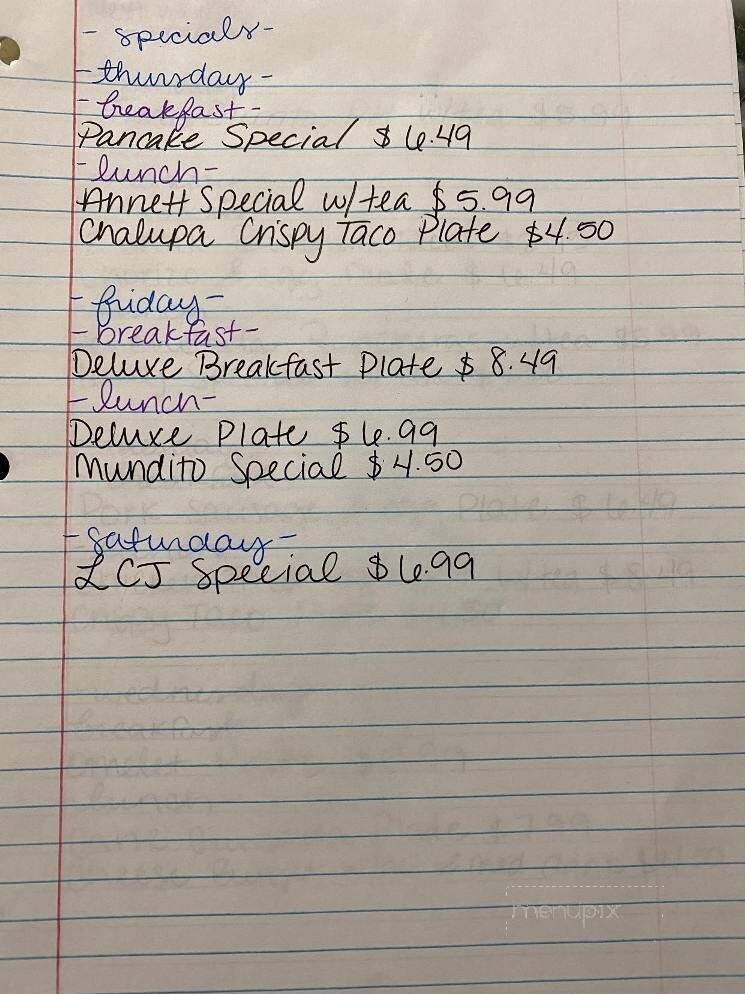 - specials -
- thursday -
- breakfast -
Pancake Special $6.49
- lunch -
Annett Special w/tea $5.99
Chalupa Crispy Taco Plate $4.50
- friday -
- breakfast -
Deluxe Breakfast Plate $8.49
- lunch -
Deluxe Plate $6.99
Mundito Special $4.50
- saturday -
LCJ Special $6.99
menupix